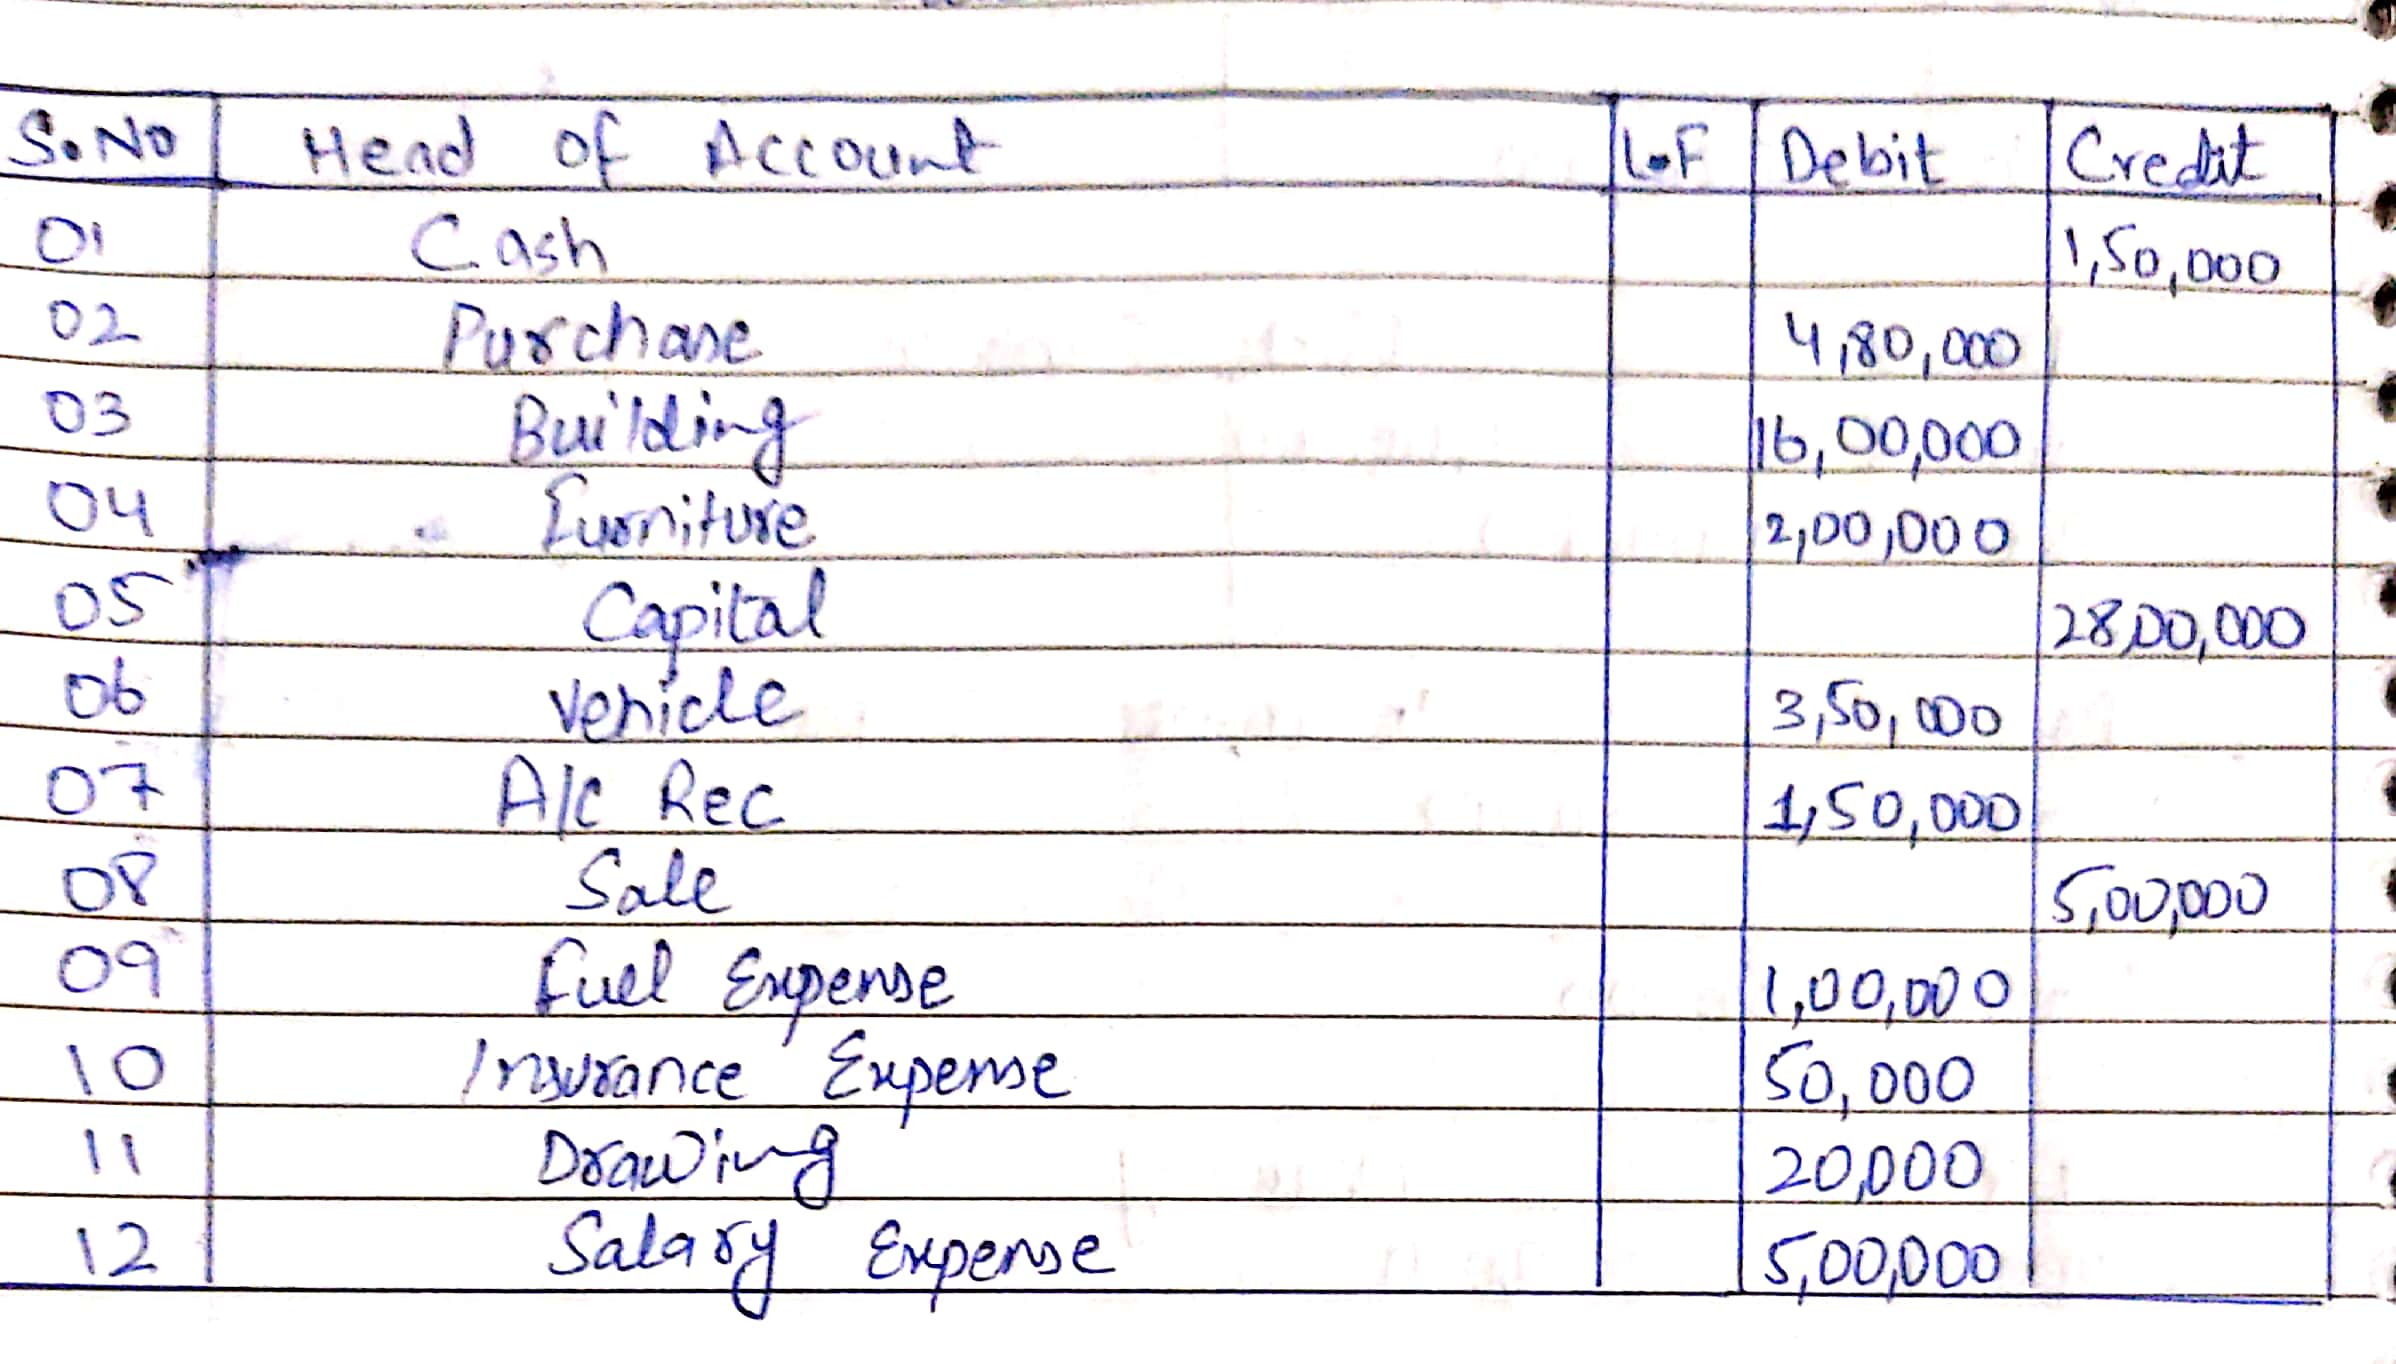 S.No Head of Account L.F Debit Credit
01 Cash 1,50,000
02 Purchase 4,80,000
03 Building 16,00,000
04 Furniture 2,00,000
05 Capital 28,00,000
06 Vehicle 3,50,000
07 A/c Rec 1,50,000
08 Sale 5,00,000
09 Fuel Expense 1,00,000
10 Insurance Expense 50,000
11 Drawing 20,000
12 Salary Expense 5,00,000